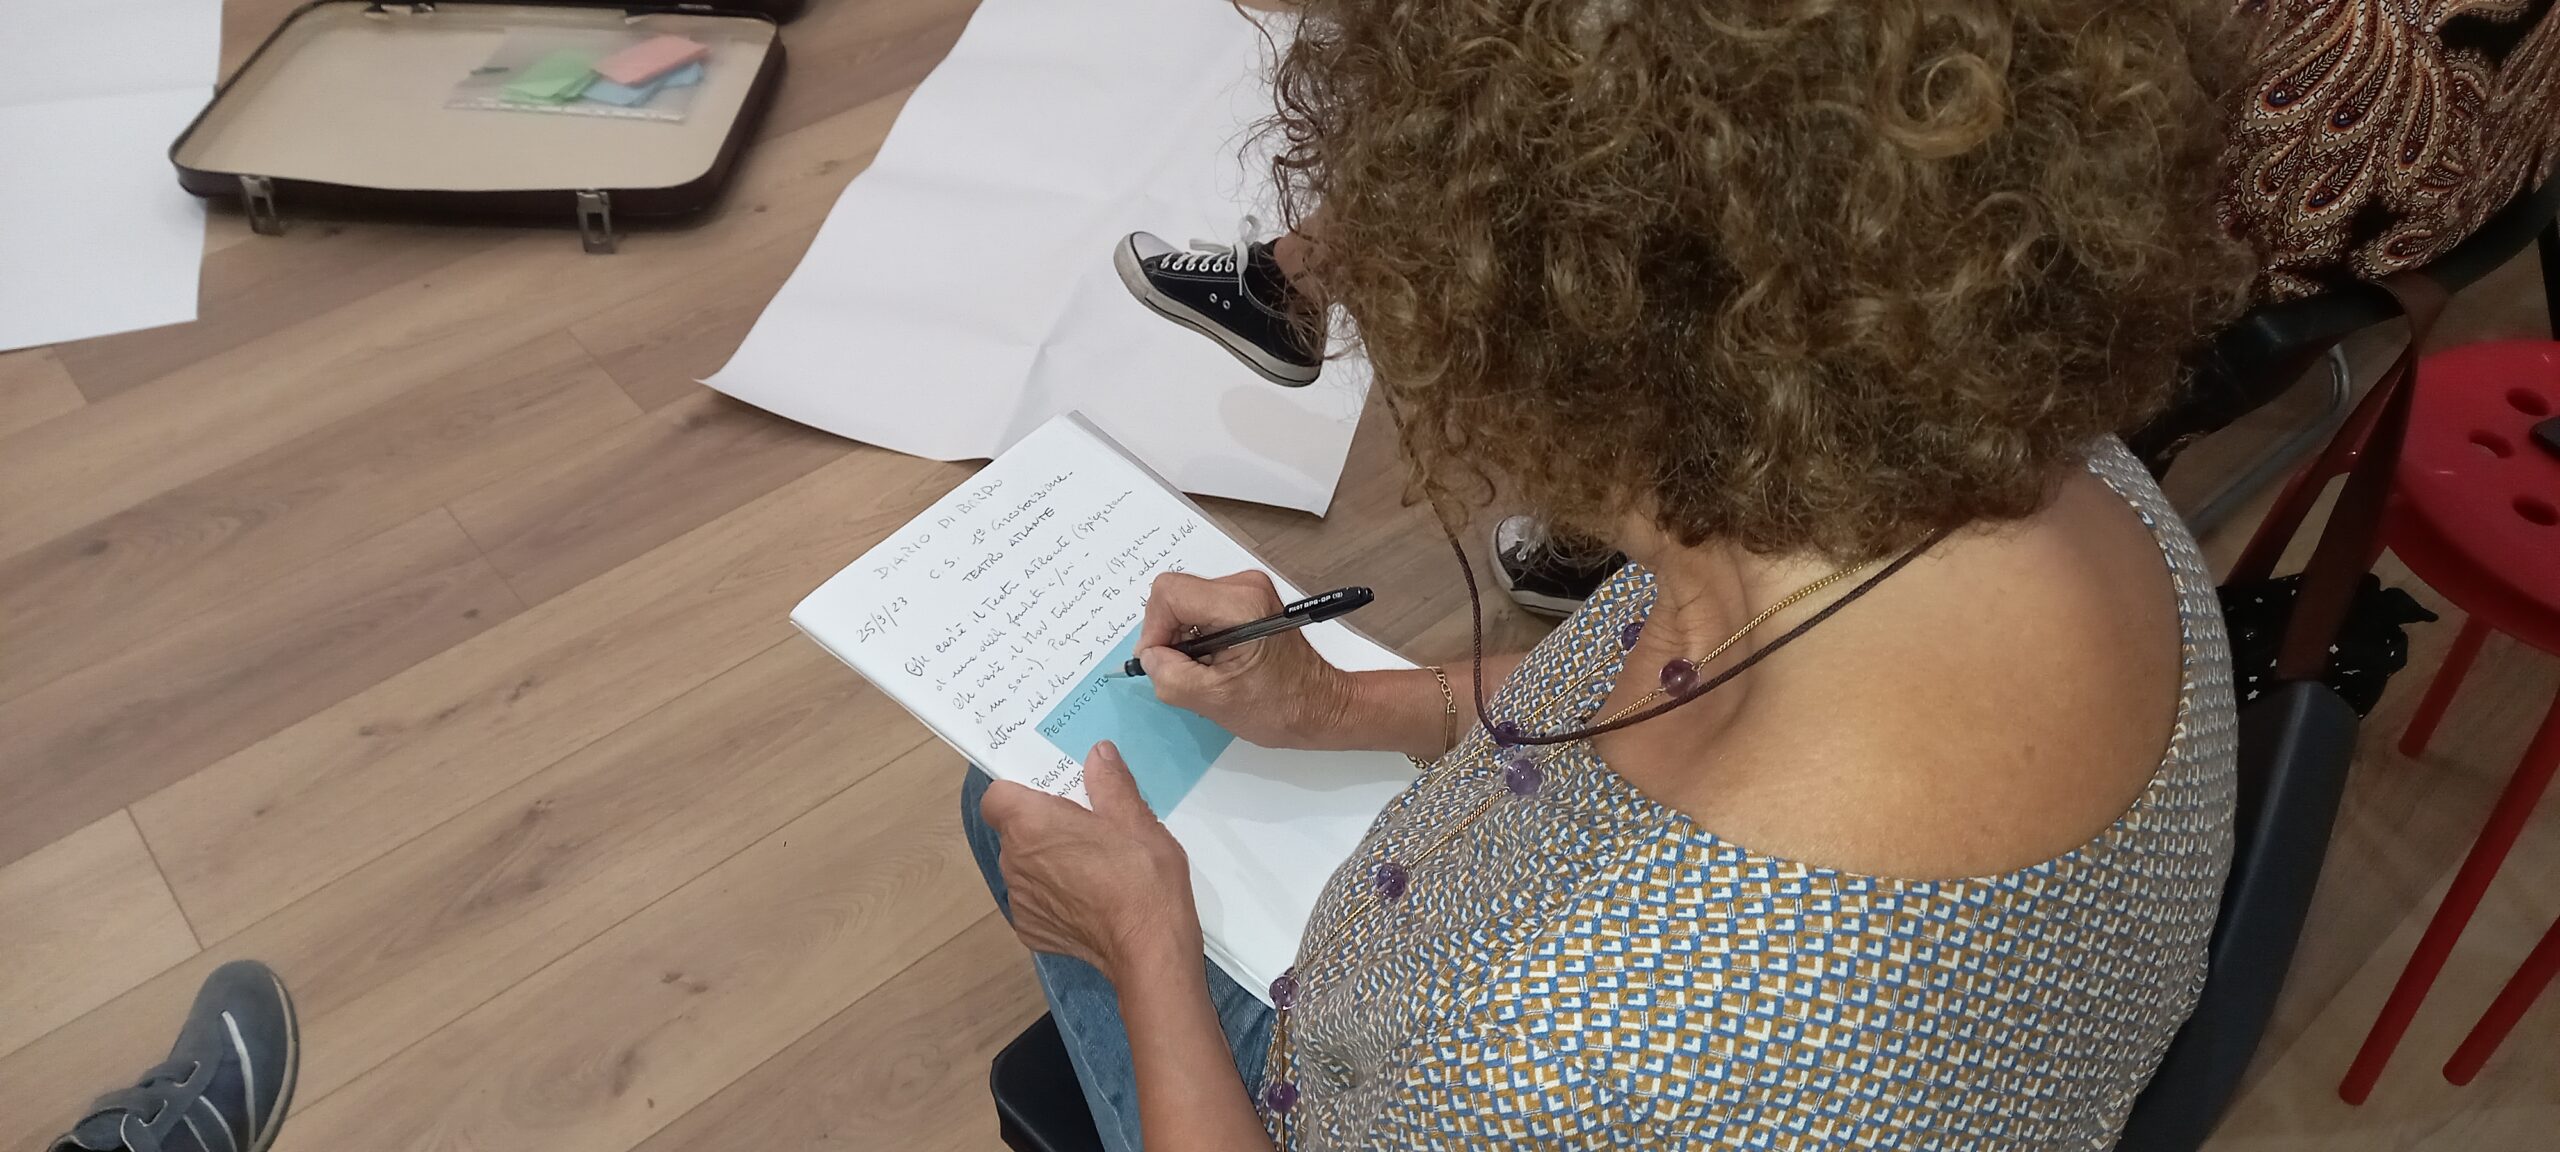 DIARIO DI BORDO
C.S. 1ª Circoscrizione.
TEATRO ATLANTE
25/9/23
Che cos'è il Teatro Atlante (spiegazione
di una delle
Che cos'è il Mov Educativo (spiegazione
di un socio). Pagina in Fb x aderire al Mov.
Lettura del libro →
PERSISTENTE
PERSISTE
PILOT BPS-GP